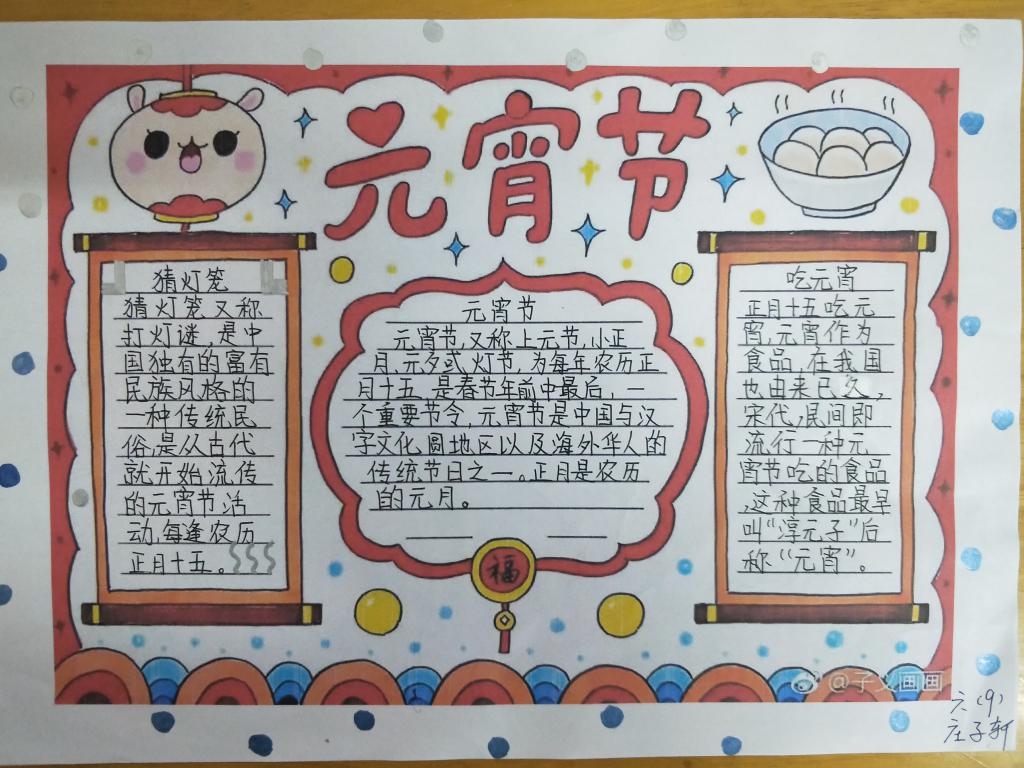 元宵节
猜灯笼
猜灯笼又称
打灯谜,是中
国独有的富有
民族风格的
一种传统民
俗,是从古代
就开始流传
的元宵节活
动,每逢农历
正月十五。
元宵节
元宵节,又称上元节,小正
月、元夕或灯节,为每年农历正
月十五,是春节年前中最后,一
个重要节令,元宵节是中国与汉
字文化圈地区以及海外华人的
传统节日之一。正月是农历
的元月。
福
吃元宵
正月十五吃元
宵,元宵作为
食品,在我国
也由来已久,
宋代,民间即
流行一种元
宵节吃的食品
,这种食品最早
叫“浮元子”后
称“元宵”。
@子义画画
六(9)
庄子轩